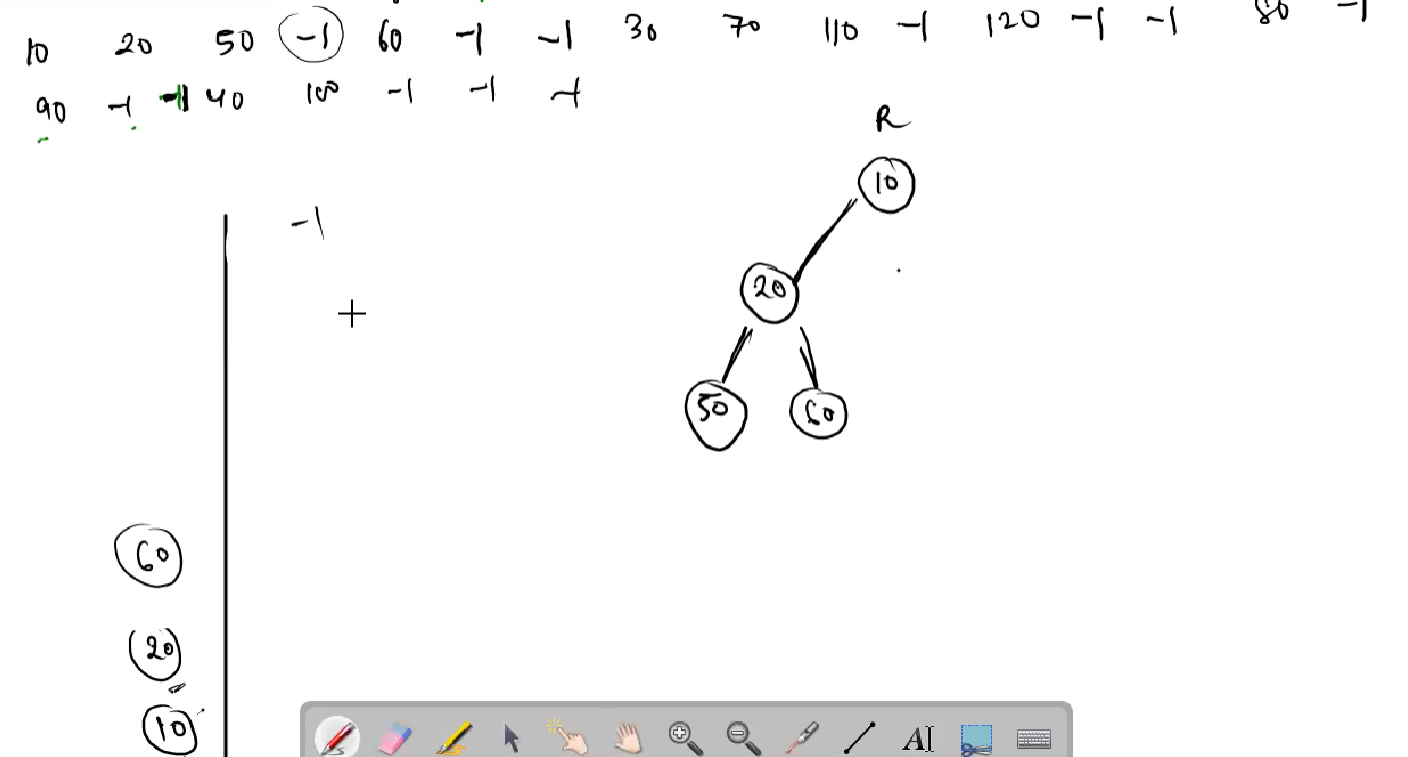 10 20 50 -1 60 -1 -1 30 70 110 -1 120 -1 -1 80 -1
90 -1 -1 40 100 -1 -1 -1
R
10
-1
20
50 60
60
20
10
AI